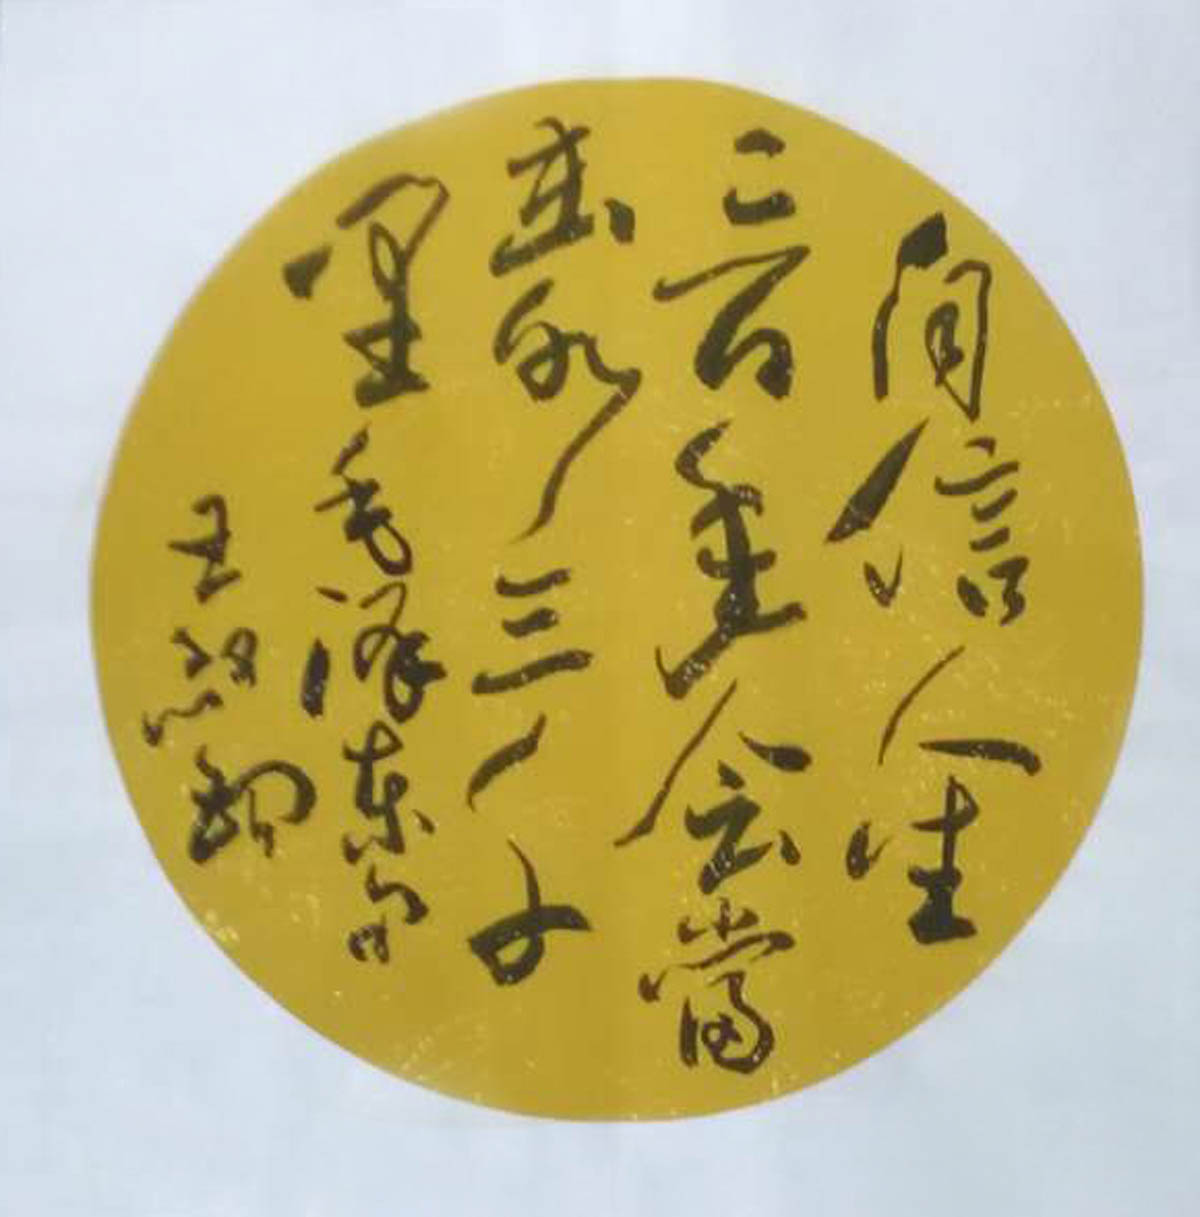 自信人生
二百年会當
击水三千
里毛泽东
王